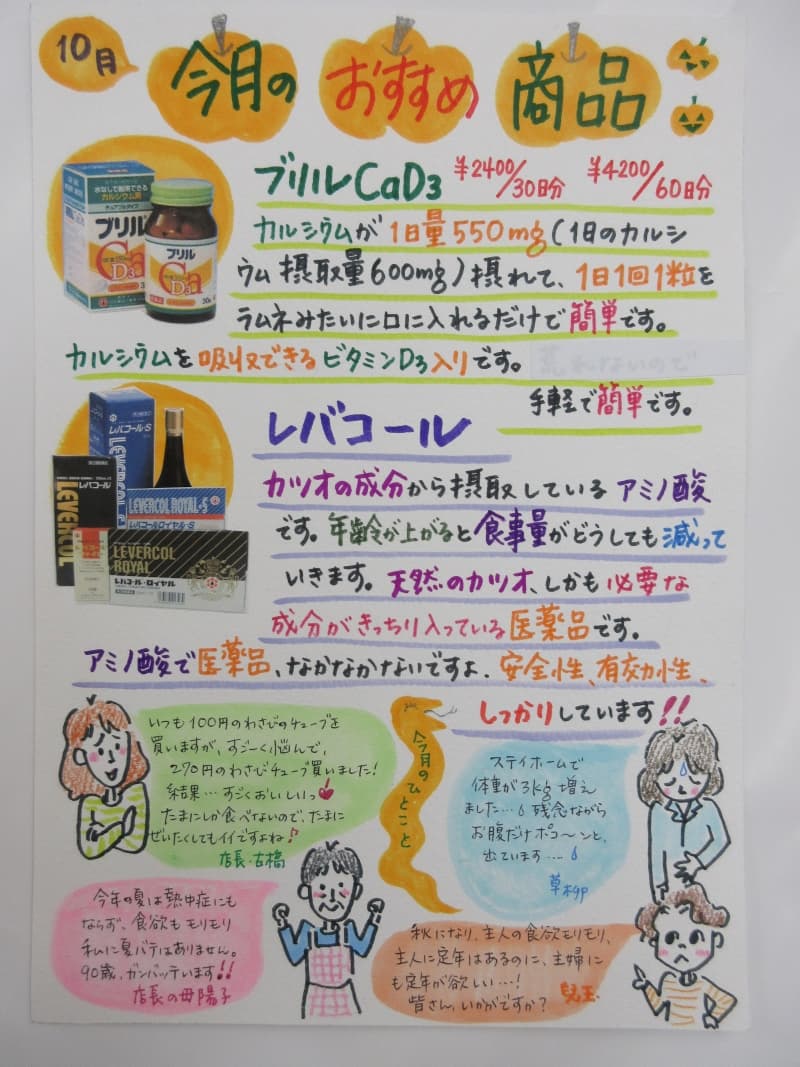 10月
今月の おすすめ 商品
ブリルCaD3 ¥2400/30日分 ¥4200/60日分
カルシウムが1日量550mg(1日のカルシ
ウム摂取量600mg)摂れて、1日1回1粒を
ラムネみたいに口に入れるだけで簡単です。
カルシウムを吸収できるビタミンD3入りです。
手軽で簡単です。
ブリル
Ca
D3
ブリル
Ca
D3
レバコール
カツオの成分から摂取しているアミノ酸
です。年齢が上がると食事量がどうしても減って
いきます。天然のカツオ、しかも必要な
成分がきっちり入っている医薬品です。
アミノ酸で医薬品、なかなかないですよ。安全性、有効性、
しっかりしています!!
レバコール-S
LEVERCOL
レバコール
LEVERCOL
LEVERCOL ROYAL-S
レバコールロイヤル-S
LEVERCOL
ROYAL
レバコール・ロイヤル
今月のひとこと
いつも100円のわさびのチューブを
買いますが、すごーく悩んで、
270円のわさびチューブ買いました!
結果…すごくおいしいっ
たまにしか食べないので、たまに
ぜいたくしてもイイですよね♪
店長・古橋
ステイホームで
体重が3kg増え
ました…残念ながら
お腹だけポコ〜ンと、
出ています….
今年の夏は熱中症にも
ならず、食欲もモリモリ
私に夏バテはありません。
90歳、ガンバッテいます!!
店長の母陽子
秋になり、主人の食欲モリモリ、
主人に定年はあるのに、主婦に
も定年が欲しい…!
皆さん、いかがですか?
児玉.